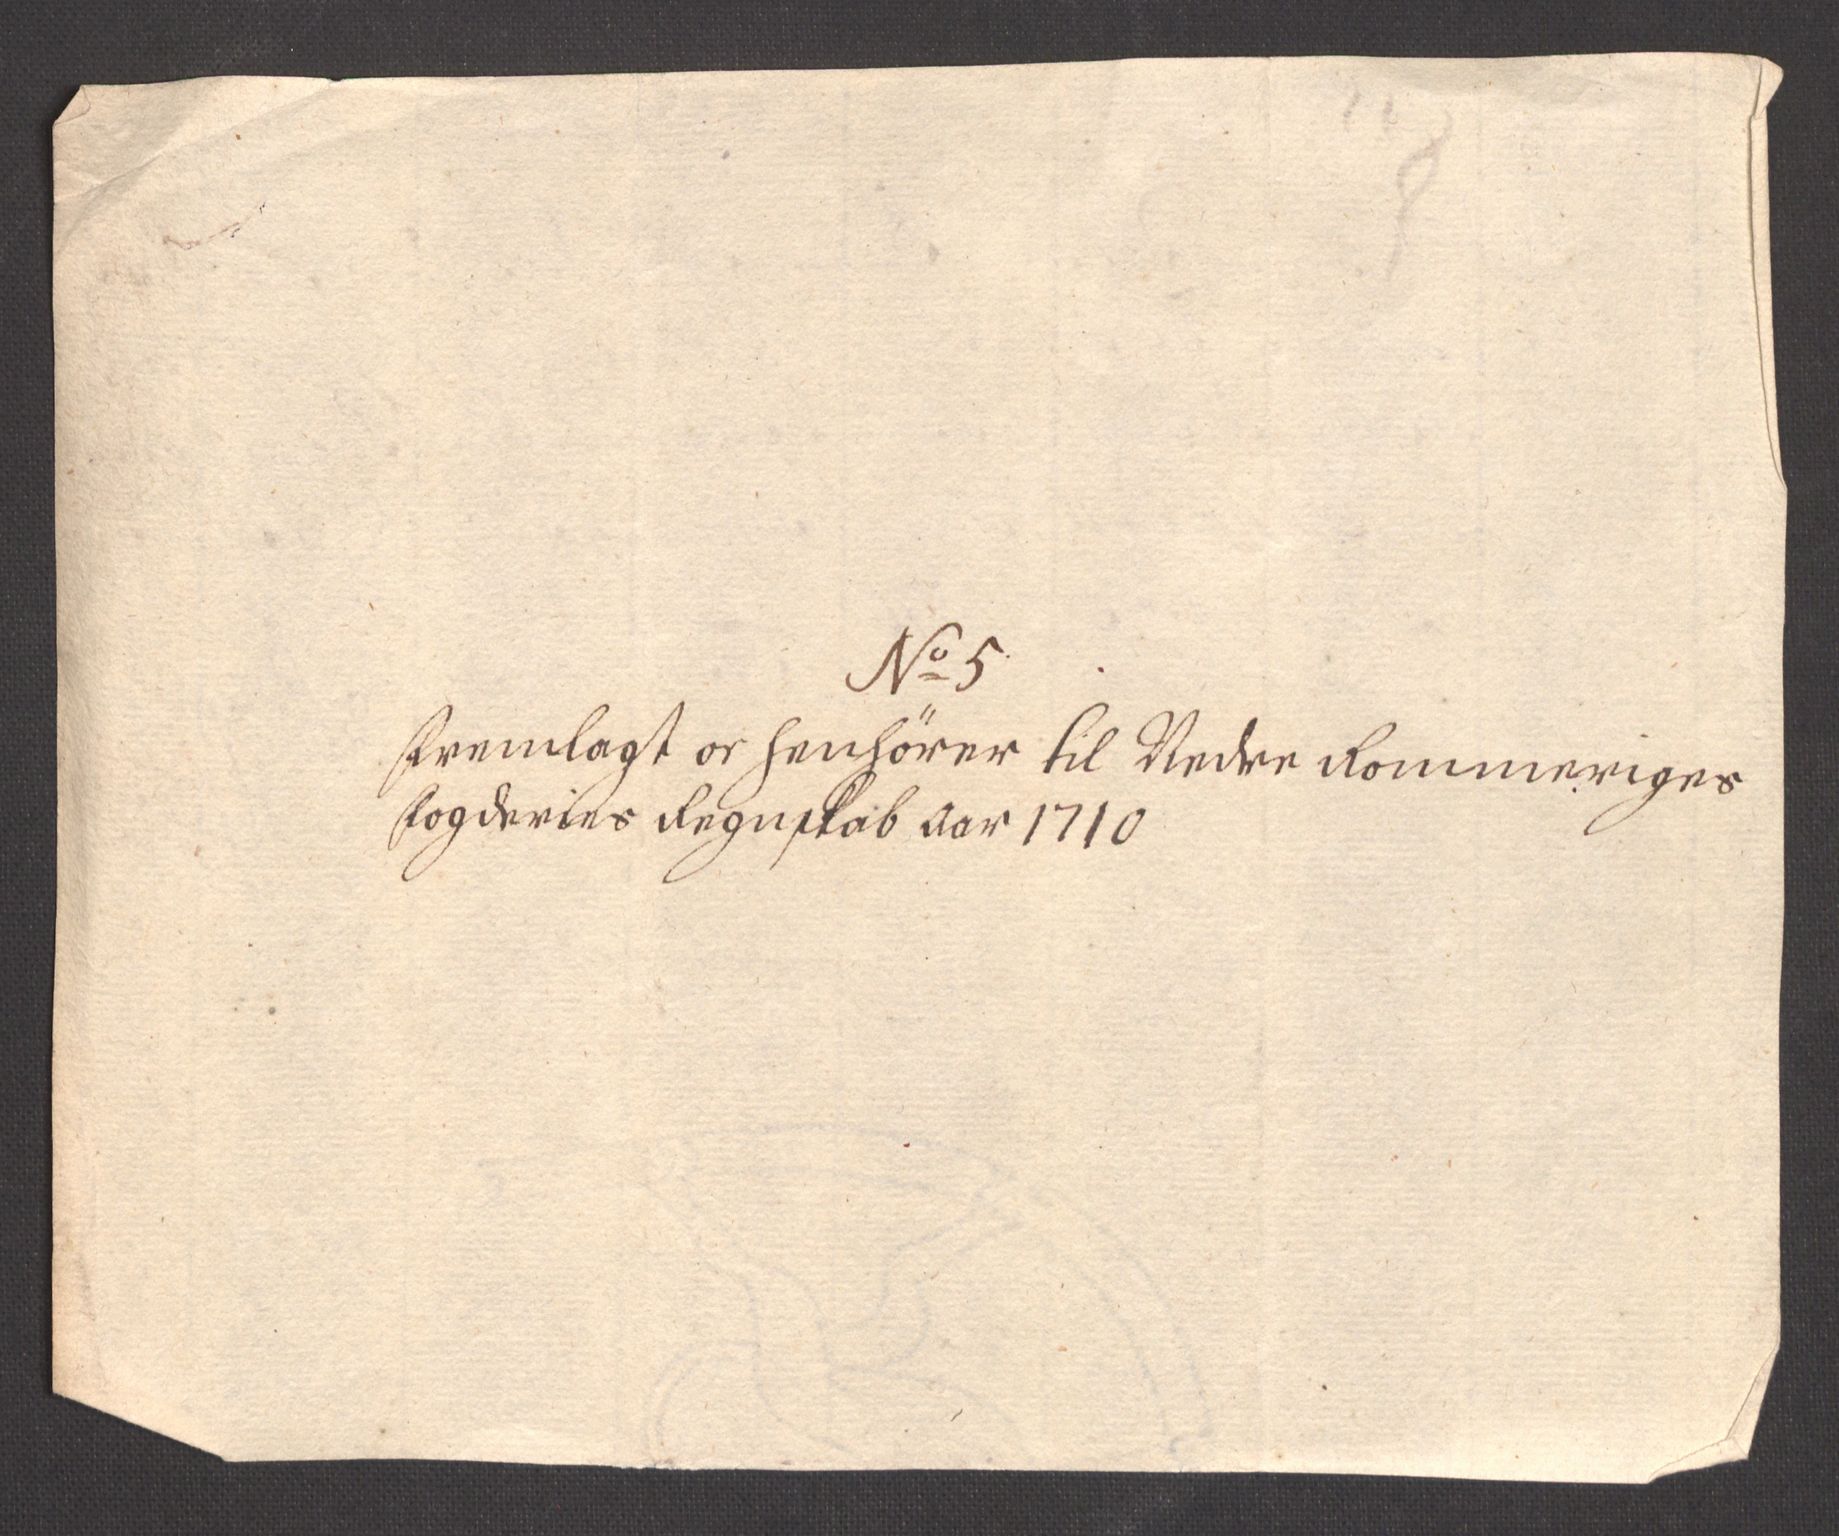 No 5
Fremlagt oc henhörer til Nedre Rommeriges
fogderies Regnskab Aar 1710